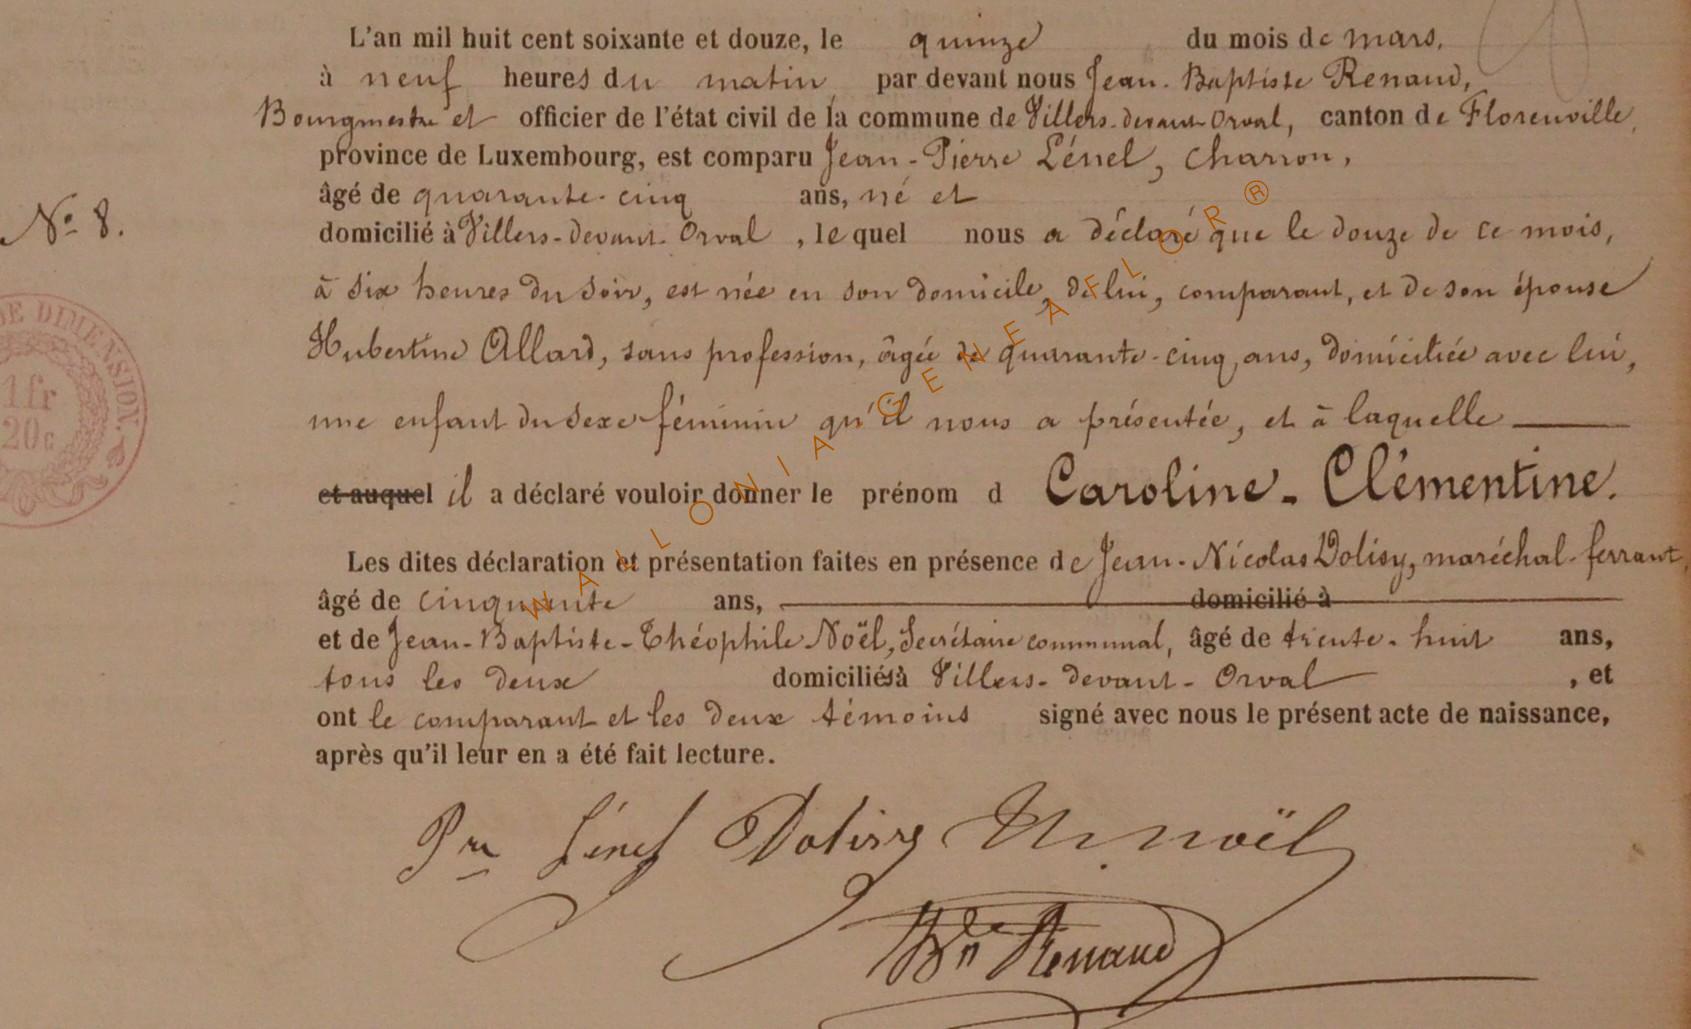 L'an mil huit cent soixante et douze, le quinze du mois de mars,
à neuf heures du matin, par devant nous Jean-Baptiste Renaud,
Bourgmestre et officier de l'état civil de la commune de Villers-devant-Orval, canton de Florenville,
province de Luxembourg, est comparu Jean-Pierre Lénel, charron,
âgé de quarante-cinq ans, né et
domicilié à Villers-devant-Orval, lequel nous a déclaré que le douze de ce mois,
N° 8.
à six heures du soir, est née en son domicile, de lui, comparant, et de son épouse
Hubertine Allard, sans profession, âgée de quarante-cinq ans, domiciliée avec lui,
une enfant du sexe féminin qu'il nous a présentée, et à laquelle
et auquel il a déclaré vouloir donner le prénom d Caroline-Clémentine.
Les dites déclaration et présentation faites en présence de Jean-Nicolas Dolisy, maréchal-ferrant,
âgé de cinquante ans, domicilié à
et de Jean-Baptiste-Théophile Noël, Secrétaire communal, âgé de trente-huit ans,
tous les deux domiciliés à Villers-devant-Orval, et
ont le comparant et les deux témoins signé avec nous le présent acte de naissance,
après qu'il leur en a été fait lecture.
DE DIMENSION.
1fr
20c
WALLONIA GENEAFLOR ®
Dolisy Noël
Renaud